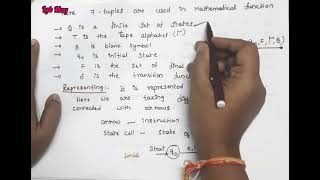 7-tuples are used in Mathematical function
→ Q is a finite set of states
→ T is the Tape alphabet (Γ) , F, Γ, B)
→ B is blank symbol
→ q0 is initial state
→ F is the set of final
→ δ is the transition function
Representing:- It is represented
Here we are taking
connected with arrows.
arrow — instruction
State call — State of
Start q0 0,1